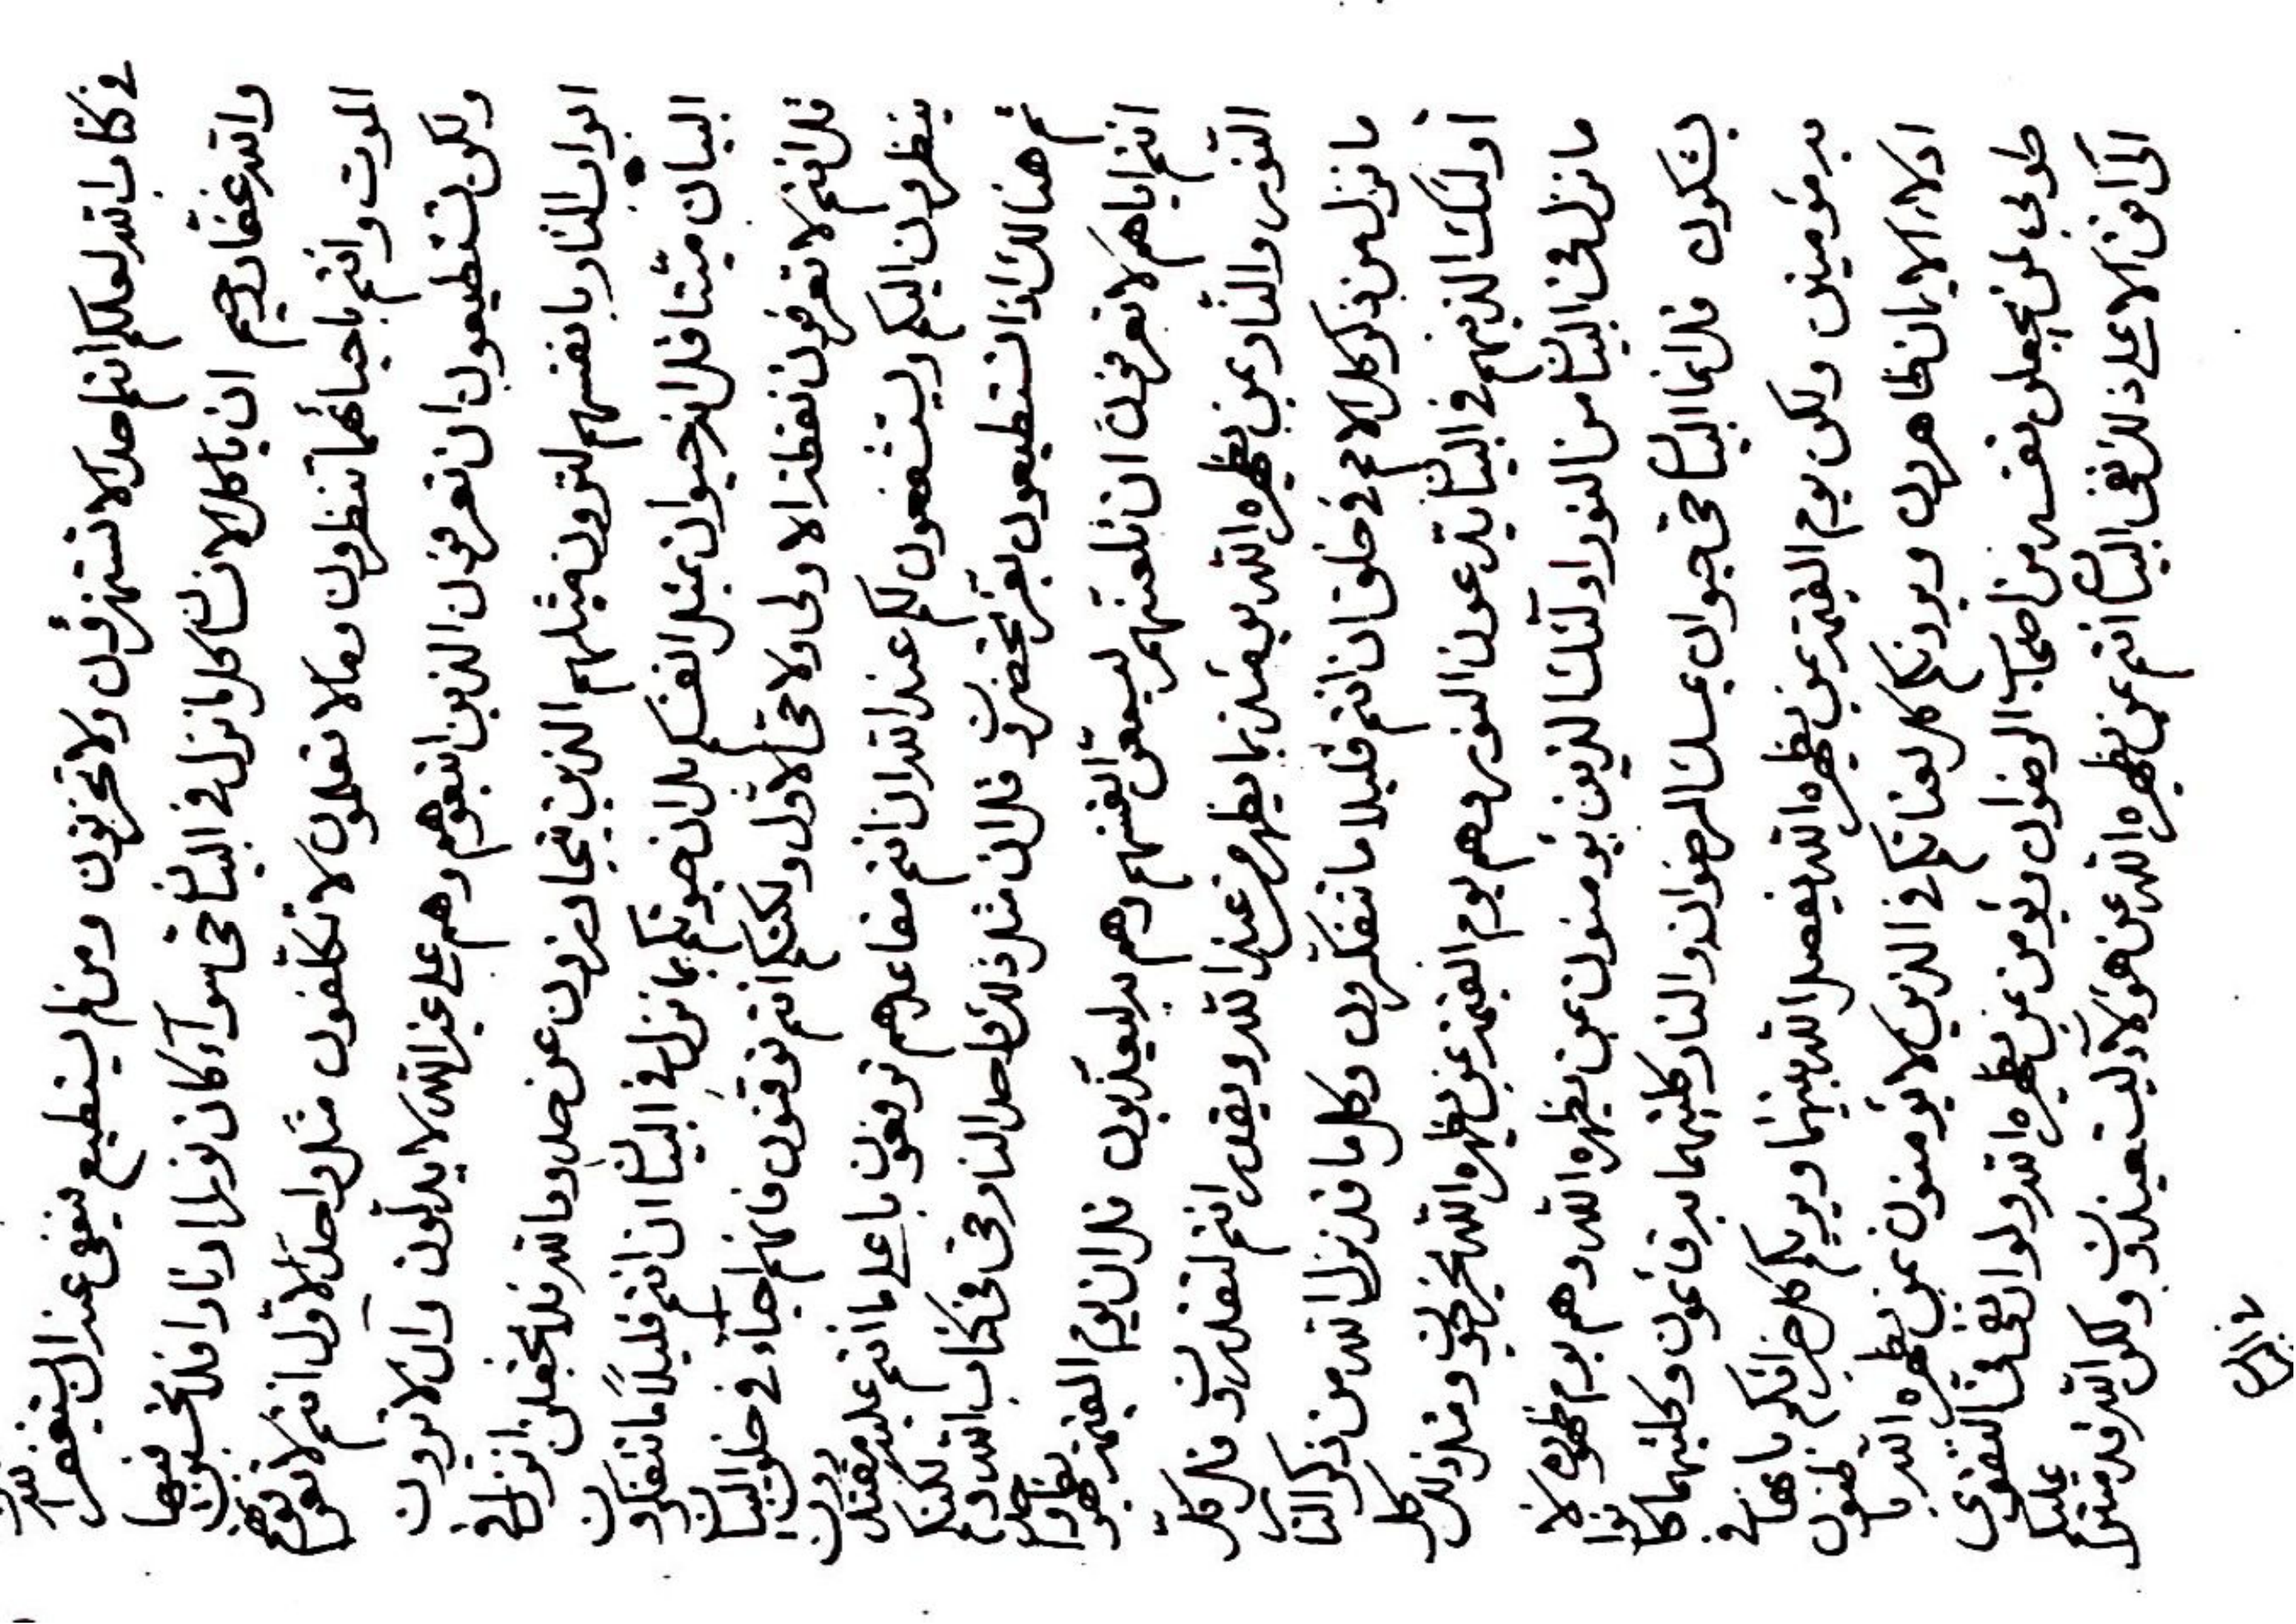 في كتاب الله لعلكم انتم احدا لا تستهزؤن ولا تحزنون ومن لم يستطيع فيعفى عنه ان يستغفر الله
والله غفار رحيم ان يا كل الانسان كل ما نزل في البيان في سوآء كان نورا او نارا فلا تحببون فيهما
الموت وانتم باحيائهما تنظرون وما لا تعلمون لا تكلفون مثل واحد الاول انتم لا تعرفونهم
ولكن تستطيعون ان تعرفون الذين اتبعوهم وهم على عند الله لا يدلون وان لا ترون
ابواب النار بانفسهم لترون مثلهم الذين يتجاوزون عن حدود الله فلا تجعلن انزل في
البيان ميتا قل انه حيوان بمثل انفسكم بل ان حيوتكم بما نزل في البيان ان انتم قليلا ما تتفكرون
قل انتم لا تعرفون نقطة الاولى ولا حي الاول ولكنكم انتم توقنون فانهم احياء في خلق البيان
ينظرون اليكم ويستشفعون لكم عند الله ان انتم مقاعدهم ترفعون باعلى ما انتم عليه مقتدرون
ثم هنالك اذا تستطيعون بقر تحضرن قل ان مثل ذلك واحد النار في كتاب الله ولكنكم
انتم اياهم لا تعرفون ان تلعنهم ليسعن انفسهم وهم به ليعذبون قل ان يوم القيمة يظهر
النور والنار بمن يظهره الله يومئذ بما يظهر من عند الله ويقدر انتم لتقدرن قل كل
ما نزل من ذكر كل الاسم في خلق ان انتم قليلا ما تتفكرون وكل ما قد نزل الله من ذكر النار
اولئك الذينهم في البيان يدعون النور وهم يوم القيمة عمن يظهره الله يحتجبون ومثل ذلك كل
ما نزل في البيان من النور اولئك الذين يؤمنون بمن يظهره الله وهم يوم ظهوره لا
يشكون قل انما البيان في حيوان يمسك الرضوان والنار وكلتيهما به قائمون وكلتيهما كانوا
به مؤمنين ولكن يوم القيمة بمن يظهره الله يفصل الله بينهما ويريكم كل خزائنكم باعمالكم في
ادلاء الايمان ظاهرون ويودنكم كل لعناتكم في الذين لا يؤمنون بمن يظهره الله يا ظنون
طوبى لمن يجعلن نفسه من اصحاب الرضوان يؤمن بمن يظهره الله ولو ان يقى في التقوى
الى افق الاعلى ذلك بقى البيان انتم بمن يظهره الله عن هؤلاء ليستعيذن ولكن الله قد منى عليكم